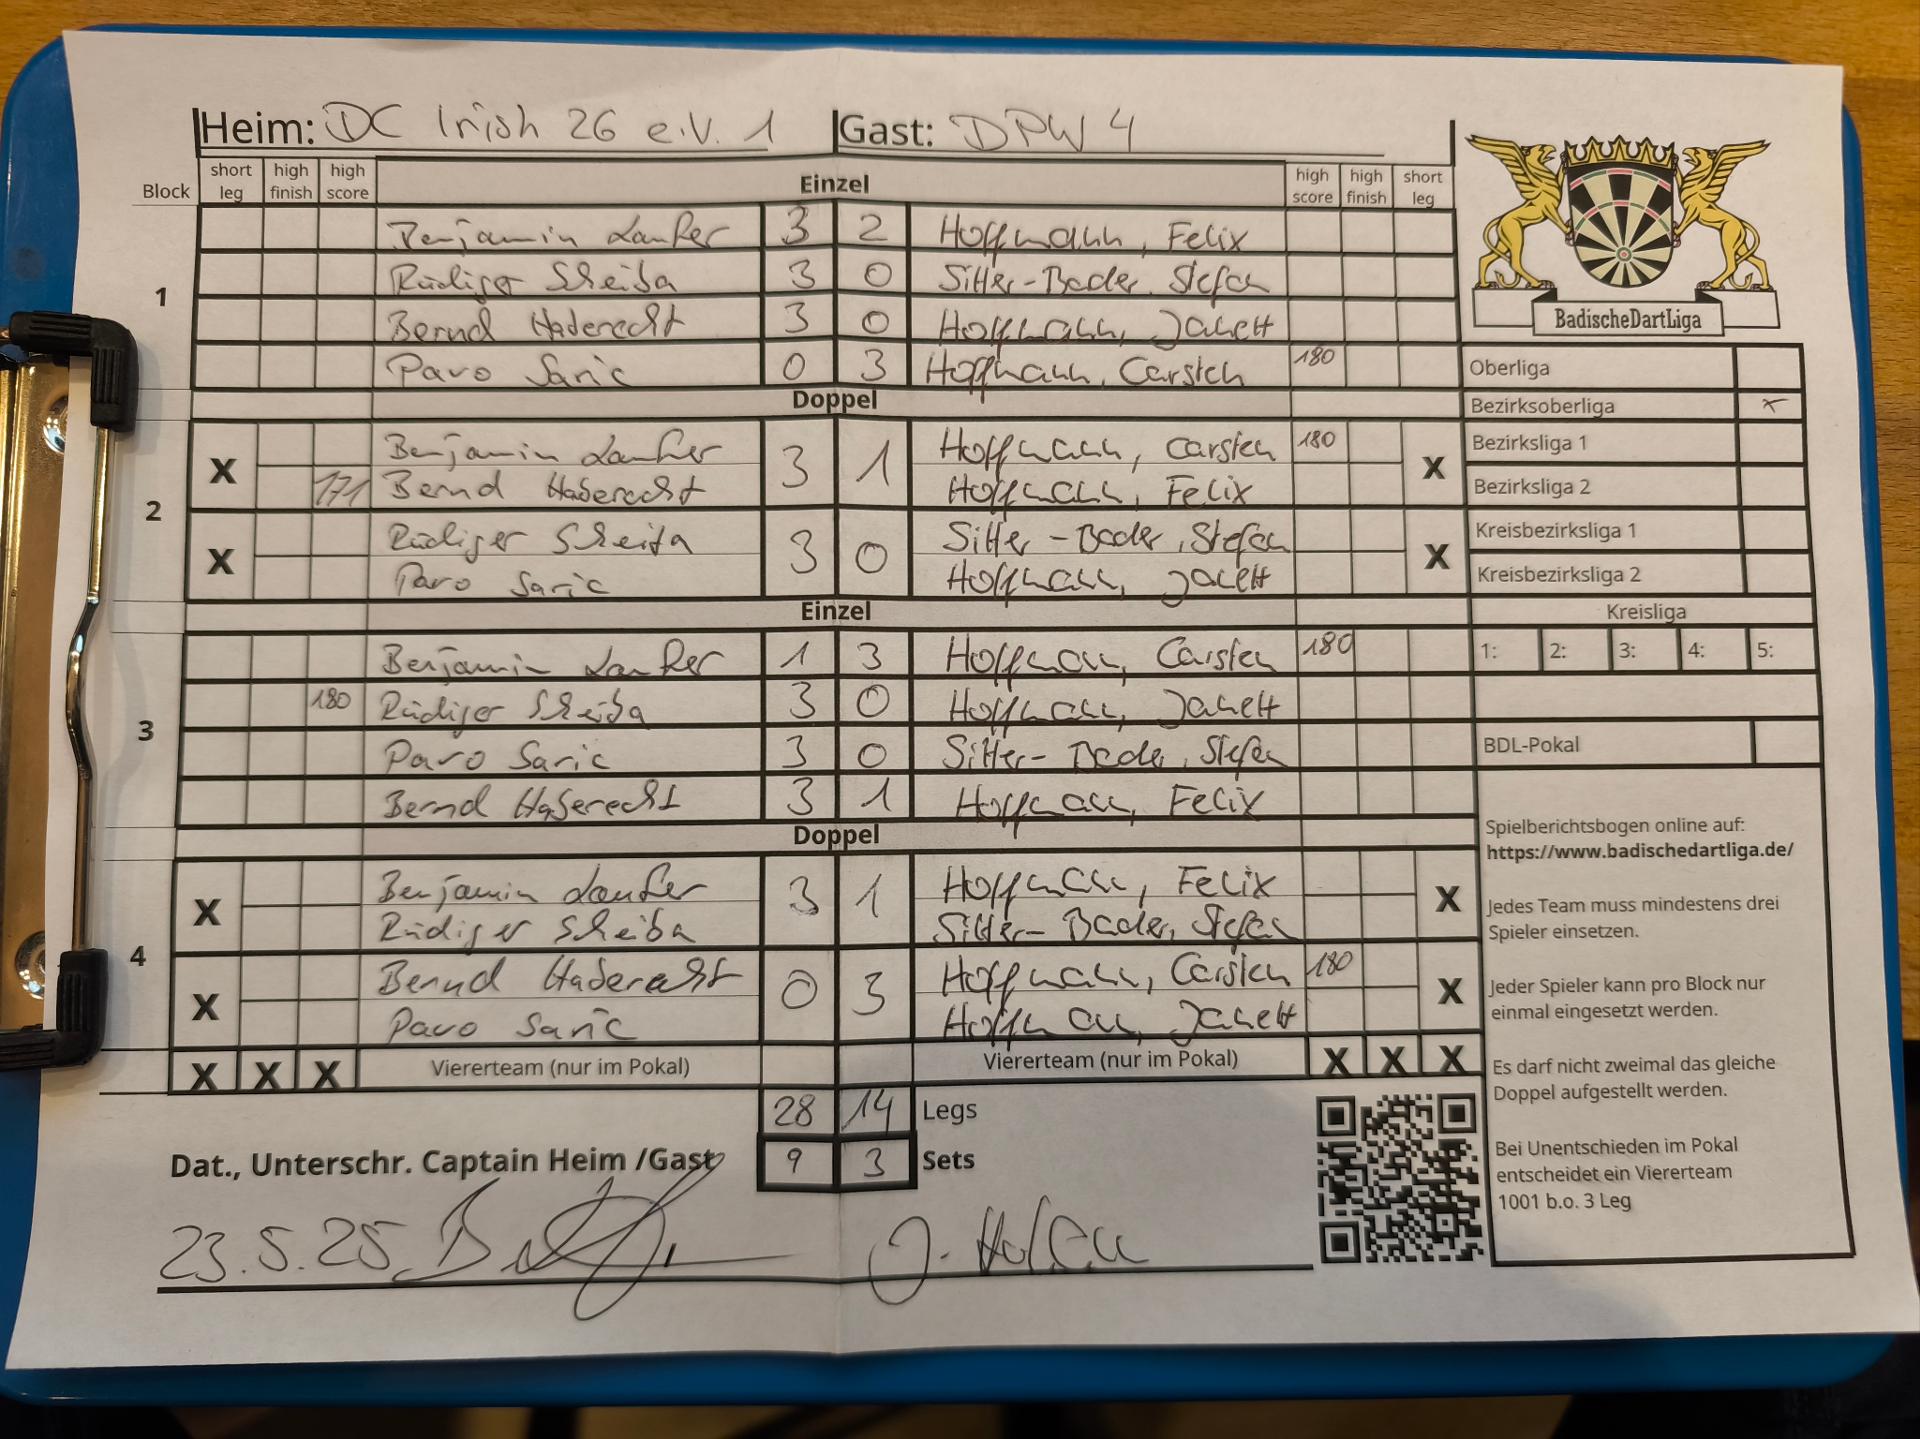 Heim: DC Irish 26 e.V. 1 Gast: DPW 4
Block short leg high finish high score Einzel high score high finish short leg
1
Benjamin Laufer 3 2 Hoffmann, Felix
Rüdiger Scheiba 3 0 Sitter-Bader, Stefan
Bernd Haberecht 3 0 Hoffmann, Janett
Pavo Saric 0 3 Hoffmann, Carsten 180
Doppel
2
X Benjamin Laufer 3 1 Hoffmann, Carsten 180 X
171 Bernd Haberecht Hoffmann, Felix
X Rüdiger Scheiba 3 0 Sitter-Bader, Stefan X
Pavo Saric Hoffmann, Janett
Einzel
3
Benjamin Laufer 1 3 Hoffmann, Carsten 180
180 Rüdiger Scheiba 3 0 Hoffmann, Janett
Pavo Saric 3 0 Sitter-Bader, Stefan
Bernd Haberecht 3 1 Hoffmann, Felix
Doppel
4
X Benjamin Laufer 3 1 Hoffmann, Felix X
Rüdiger Scheiba Sitter-Bader, Stefan
X Bernd Haberecht 0 3 Hoffmann, Carsten 180 X
Pavo Saric Hoffmann, Janett
X X X Viererteam (nur im Pokal) Viererteam (nur im Pokal) X X X
28 14 Legs
Dat., Unterschr. Captain Heim /Gast 9 3 Sets
23.5.25
BadischeDartLiga
Oberliga
Bezirksoberliga x
Bezirksliga 1
Bezirksliga 2
Kreisbezirksliga 1
Kreisbezirksliga 2
Kreisliga
1: 2: 3: 4: 5:
BDL-Pokal
Spielberichtsbogen online auf:
https://www.badischedartliga.de/
Jedes Team muss mindestens drei
Spieler einsetzen.
Jeder Spieler kann pro Block nur
einmal eingesetzt werden.
Es darf nicht zweimal das gleiche
Doppel aufgestellt werden.
Bei Unentschieden im Pokal
entscheidet ein Viererteam
1001 b.o. 3 Leg